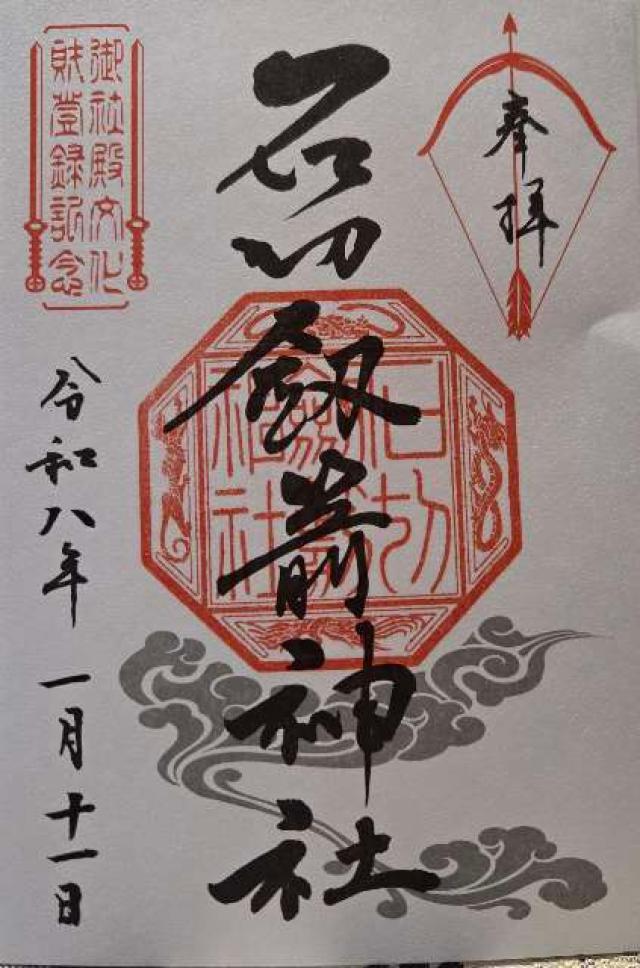 奉拝
石切劔箭神社
石切
劔箭
神社
御社殿文化
財登録記念
令和八年一月十一日